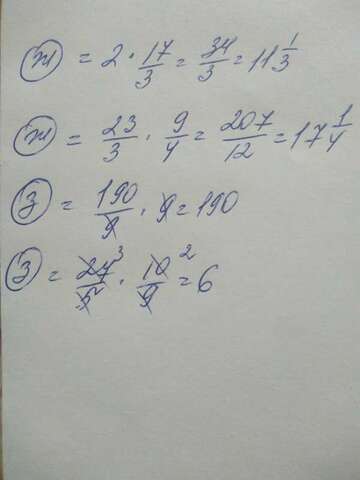 ж = 2 · 17/3 = 34/3 = 11 1/3
ж = 23/3 · 9/4 = 207/12 = 17 1/4
з = 190/9 · 9 = 190
з = 27/5 3 · 10/9 2 = 6